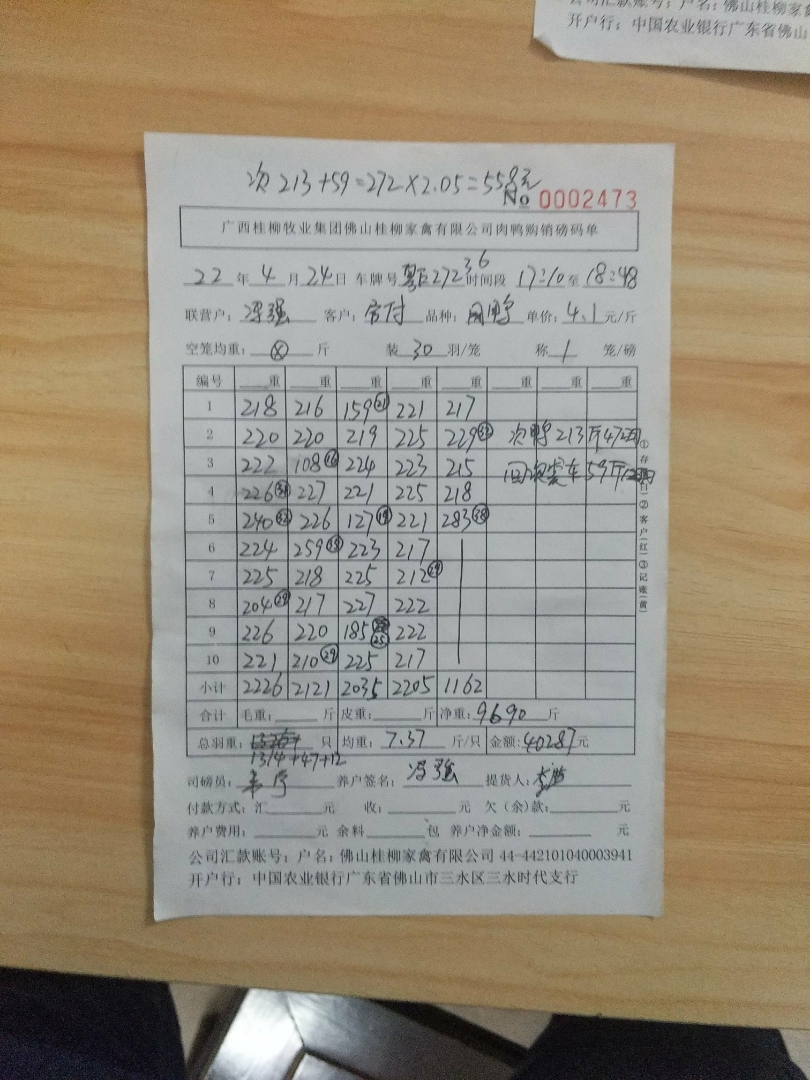 公司汇款账号：户名：佛山桂柳家禽
开户行：中国农业银行广东省佛山
次 213+59=272×2.05=558元
No 0002473
广西桂柳牧业集团佛山桂柳家禽有限公司肉鸭购销磅码单
22 年 4 月 24 日 车牌号 27236 时间段 17:10 至 18:48
联营户： 冯强 客户： 品种： 鸭 单价：4.1元/斤
空笼均重： ⊗ 斤 装 30 羽/笼 称 1 笼/磅
编号 重 重 重 重 重 重 重 重
1 218 216 159㉑ 221 217
2 220 220 219 225 229 次鸭213斤47
3 222 108⑯ 224 223 215 车59斤
4 226 227 221 225 218
5 240 226 127 221 283
6 224 259 223 217
7 225 218 225 212㉙
8 204㉙ 217 227 222
9 226 220 185㉕ 222
10 221 210㉙ 225 217
小计 2226 2121 2035 2205 1162
合计 毛重： 斤 皮重： 斤 净重：9690斤
总羽重： 只 均重：7.37 斤/只 金额：40287元
1314+47+12
司磅员： 养户签名： 冯强 提货人：
付款方式：汇 元 收： 元 欠（余）款： 元
养户费用： 元 余料 包 养户净金额： 元
公司汇款账号：户名：佛山桂柳家禽有限公司 44-442101040003941
开户行：中国农业银行广东省佛山市三水区三水时代支行
②客户（红）③记账（黄）